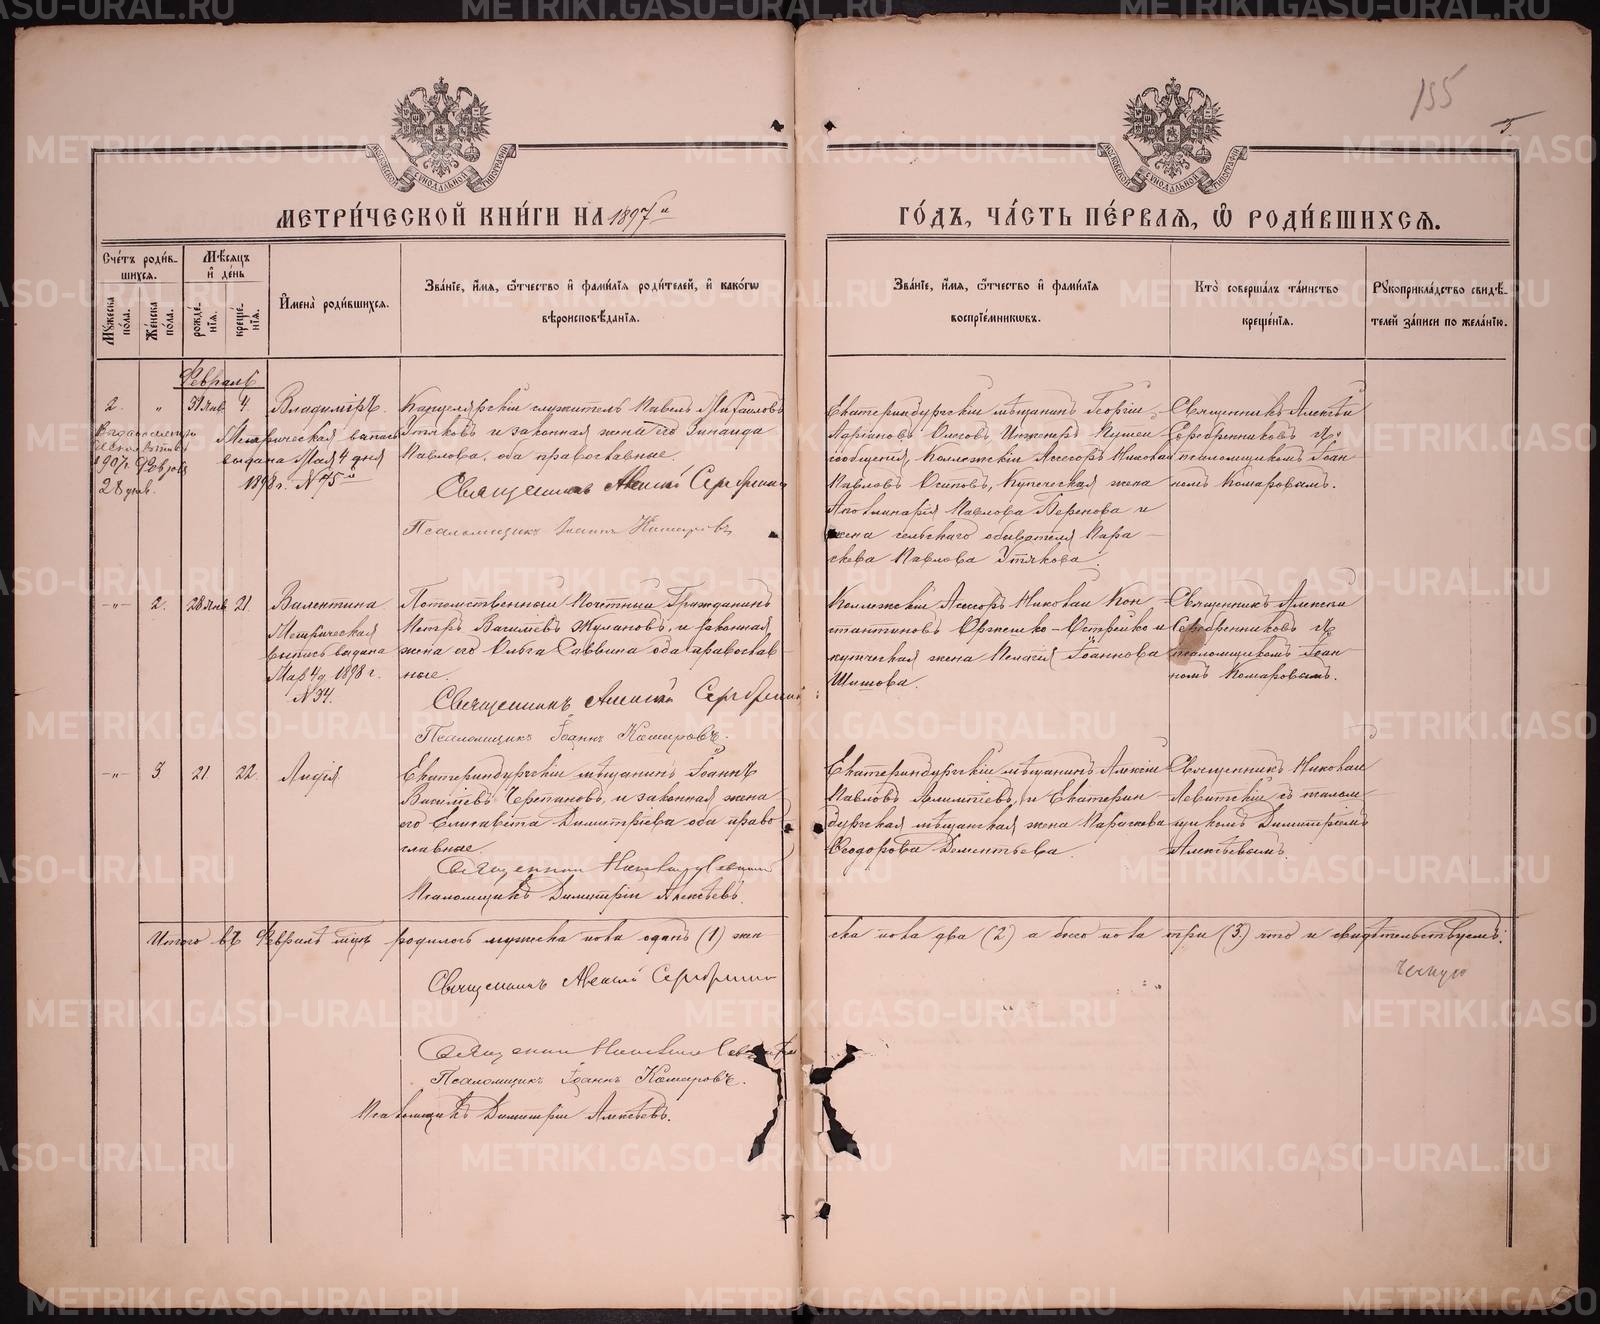 МЕТРИЧЕСКОЙ КНИГИ НА 1897й
ГОДЪ, ЧАСТЬ ПЕРВАЯ, Ѿ РОДИВШИХСЯ.
155
5
МОСКОВСКОЙ СѴНОДАЛЬНОЙ ТИПОГРАФІИ
МОСКОВСКОЙ СѴНОДАЛЬНОЙ ТИПОГРАФІИ
Счетъ родив-
шихся.
Мужеска пола.
Женска пола.
Мѣсяцъ
и день
рожде-
нія.
креще-
нія.
Имена родившихся.
Званіе, имя, ѿчество и фамилія родителей, и какого
вѣроисповѣданія.
Званіе, имя, ѿчество и фамилія
воспріемниковъ.
Кто совершалъ таинство
крещенія.
Рукоприкладство свидѣ-
телей записи по желанію.
Февраль
2. " 31 янв 4. Владиміръ.
Метрическая выпись
выдана Мая 4 дня
1898 г. №75й
28 янв.
Канцелярскій служитель Павелъ Михаиловъ
Утяковъ и законная жена его Зинаида
Павлова, оба православные.
Священникъ Алексій Серебрен
Псаломщикъ Іоаннъ Комаровъ
Екатеринбургскій мѣщанинъ Георгій
Адріановъ Олесовъ, Инженеръ Путей
сообщенія, Коллежскій Ассесоръ Николай
Павловъ Осиповъ, Купеческая жена
Аполлинарія Павлова Беренова и
жена сельскаго обывателя Пара-
скева Павлова Утякова.
Священникъ Алексѣй
Серебренниковъ съ
псаломщикомъ Іоан
номъ Комаровымъ.
-"- 2. 28 янв 21. Валентина
Метрическая
выпись выдана
Мар 4 д. 1898 г.
№ 34.
Потомственный Почетный Гражданинъ
Петръ Васильевъ Жулановъ, и законная
жена его Ольга Саввина оба православ-
ные.
Священникъ Алексій Серебрен
Псаломщикъ Іоаннъ Комаровъ.
Коллежскій Ассесоръ Николай Кон-
стантиновъ Оржешко-Острейко и
купеческая жена Пелагія Іоаннова
Шитова.
Священникъ Алексій
Серебренниковъ съ
псаломщикомъ Іоан
номъ Комаровымъ.
-"- 3 21 22. Лидія
Екатеринбургскій мѣщанинъ Іоаннъ
Василіевъ Черепановъ, и законная жена
его Елисавета Димитріева оба право
славные.
Священникъ Николай Левитскій
Псаломщикъ Димитрій Алексѣевъ.
Екатеринбургскій мѣщанинъ Алексій
Павловъ Алимпіевъ, и Екатерин-
бургская мѣщанская жена Параскева
Ѳеодорова Дементьева.
Священникъ Николай
Левитскій съ псалом-
щикомъ Димитріемъ
Алексѣевымъ.
Итого въ Февралѣ мцѣ родилось мужеска пола одинъ (1) жен-
ска пола два (2) а обоего пола три (3.) что и свидѣтельствуемъ:
Священникъ Алексій Серебренн
Священникъ Николай Левитскій
Псаломщикъ Іоаннъ Комаровъ.
Псаломщикъ Димитрій Алексѣевъ.
METRIKI.GASO-URAL.RU